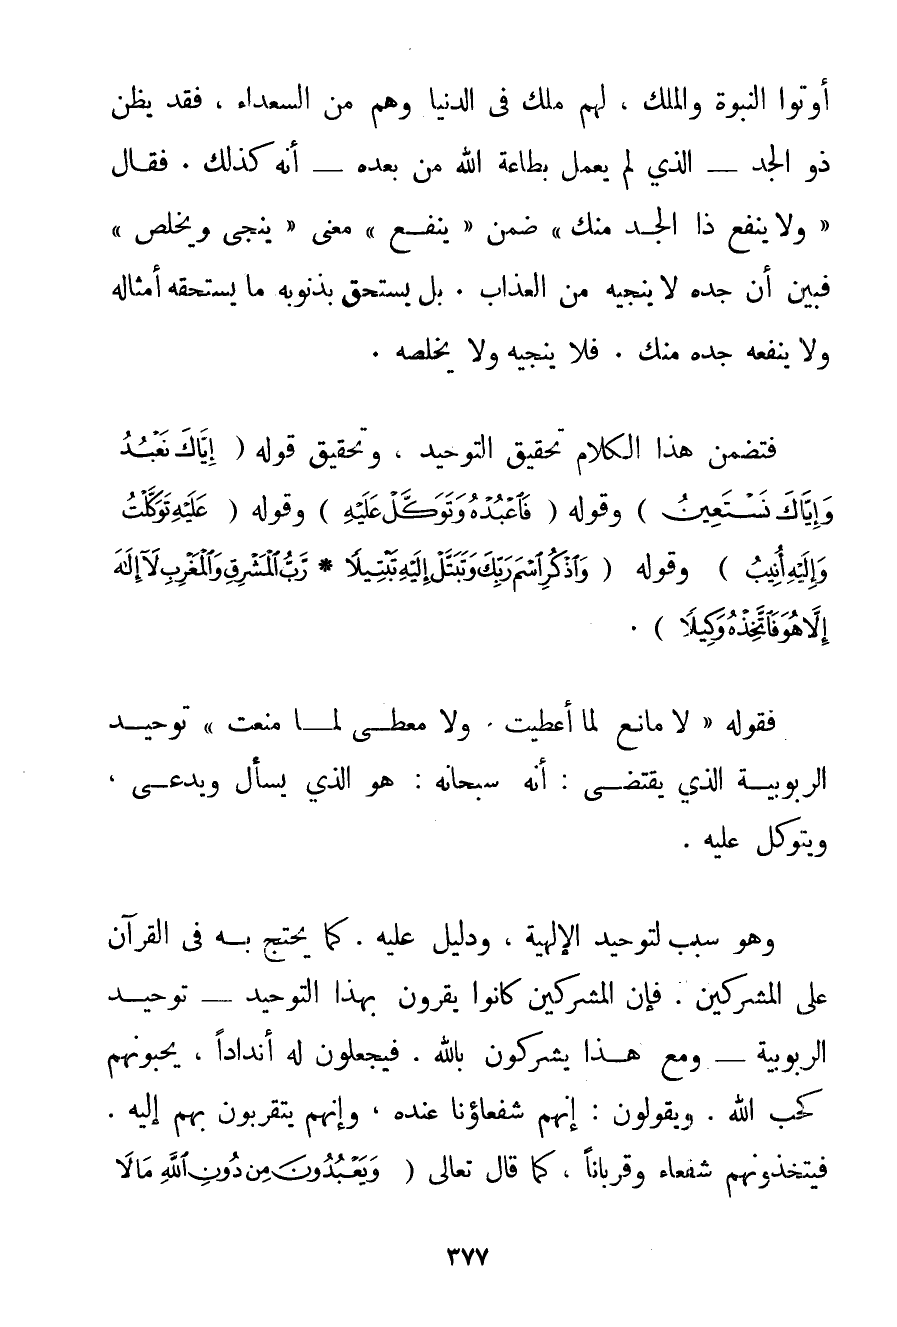 أوتوا النبوة والملك ، لهم ملك فى الدنيا وهم من السعداء ، فقد يظن
ذو الجد — الذي لم يعمل بطاعة الله من بعده — أنه كذلك . فقال
« ولا ينفع ذا الجد منك » ضمن « ينفع » معنى « ينجى ويخلص »
فبين أن جده لا ينجيه من العذاب . بل يستحق بذنوبه ما يستحقه أمثاله
ولا ينفعه جده منك . فلا ينجيه ولا يخلصه .
فتضمن هذا الكلام تحقيق التوحيد ، وتحقيق قوله ( إِيَّاكَ نَعْبُدُ
وَإِيَّاكَ نَسْتَعِينُ ) وقوله ( فَاعْبُدْهُ وَتَوَكَّلْ عَلَيْهِ ) وقوله ( عَلَيْهِ تَوَكَّلْتُ
وَإِلَيْهِ أُنِيبُ ) وقوله ( وَاذْكُرِ اسْمَ رَبِّكَ وَتَبَتَّلْ إِلَيْهِ تَبْتِيلًا * رَّبُّ الْمَشْرِقِ وَالْمَغْرِبِ لَآ إِلَٰهَ
إِلَّا هُوَ فَاتَّخِذْهُ وَكِيلًا ) .
فقوله « لا مانع لما أعطيت . ولا معطى لما منعت » توحيد
الربوبية الذي يقتضى : أنه سبحانه : هو الذي يسأل ويدعى ،
ويتوكل عليه .
وهو سبب لتوحيد الإلهية ، ودليل عليه . كما يحتج به فى القرآن
على المشركين . فإن المشركين كانوا يقرون بهذا التوحيد — توحيد
الربوبية — ومع هذا يشركون بالله . فيجعلون له أنداداً ، يحبونهم
كحب الله . ويقولون : إنهم شفعاؤنا عنده ، وإنهم يتقربون بهم إليه .
فيتخذونهم شفعاء وقرباناً ، كما قال تعالى ( وَيَعْبُدُونَ مِن دُونِ اللَّهِ مَا لَا
٣٧٧